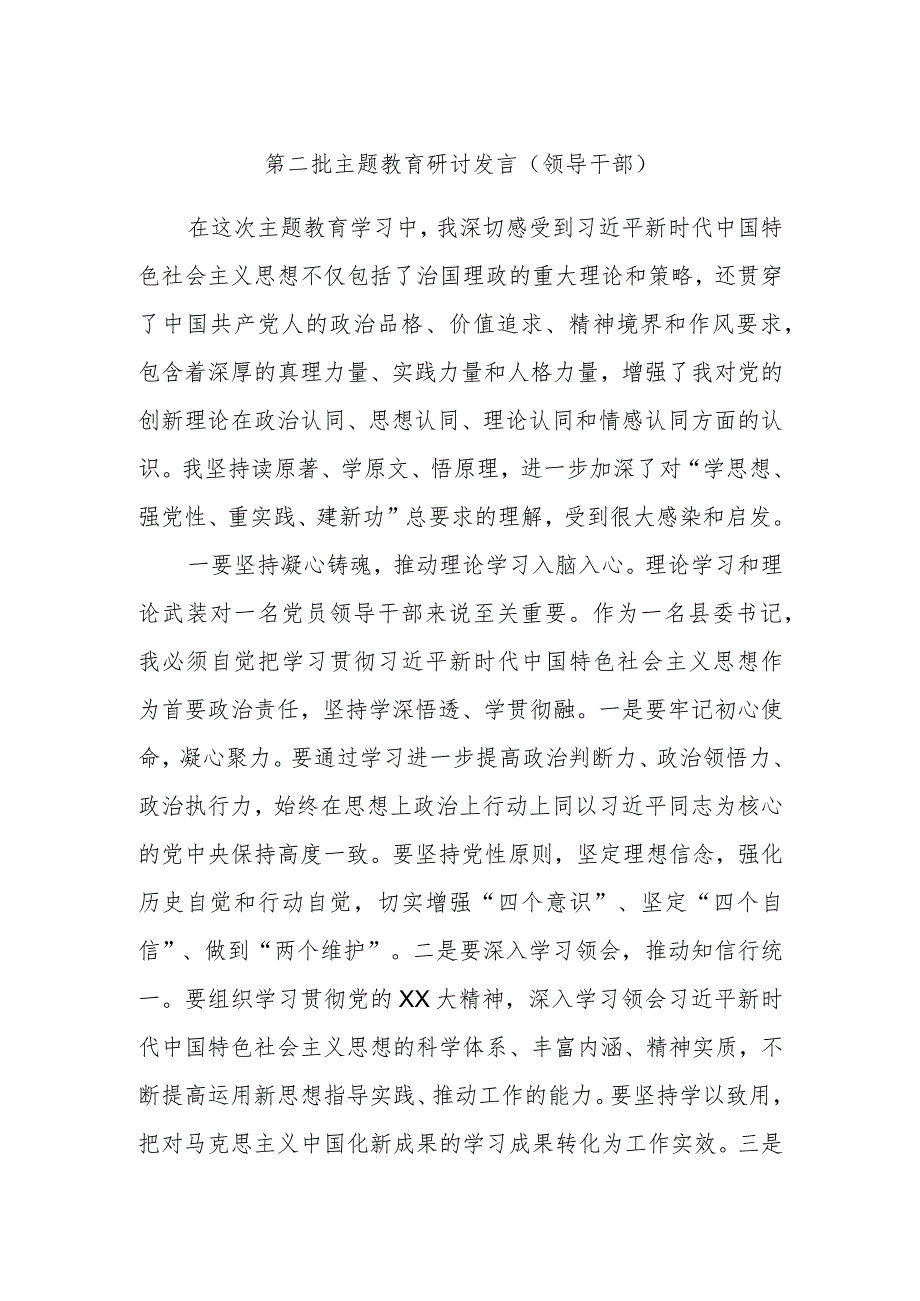 第二批主题教育研讨发言（领导干部）
在这次主题教育学习中，我深切感受到习近平新时代中国特
色社会主义思想不仅包括了治国理政的重大理论和策略，还贯穿
了中国共产党人的政治品格、价值追求、精神境界和作风要求，
包含着深厚的真理力量、实践力量和人格力量，增强了我对党的
创新理论在政治认同、思想认同、理论认同和情感认同方面的认
识。我坚持读原著、学原文、悟原理，进一步加深了对“学思想、
强党性、重实践、建新功”总要求的理解，受到很大感染和启发。
一要坚持凝心铸魂，推动理论学习入脑入心。理论学习和理
论武装对一名党员领导干部来说至关重要。作为一名县委书记，
我必须自觉把学习贯彻习近平新时代中国特色社会主义思想作
为首要政治责任，坚持学深悟透、学贯彻融。一是要牢记初心使
命，凝心聚力。要通过学习进一步提高政治判断力、政治领悟力、
政治执行力，始终在思想上政治上行动上同以习近平同志为核心
的党中央保持高度一致。要坚持党性原则，坚定理想信念，强化
历史自觉和行动自觉，切实增强“四个意识”、坚定“四个自
信”、做到“两个维护”。二是要深入学习领会，推动知信行统
一。要组织学习贯彻党的XX大精神，深入学习领会习近平新时
代中国特色社会主义思想的科学体系、丰富内涵、精神实质，不
断提高运用新思想指导实践、推动工作的能力。要坚持学以致用，
把对马克思主义中国化新成果的学习成果转化为工作实效。三是